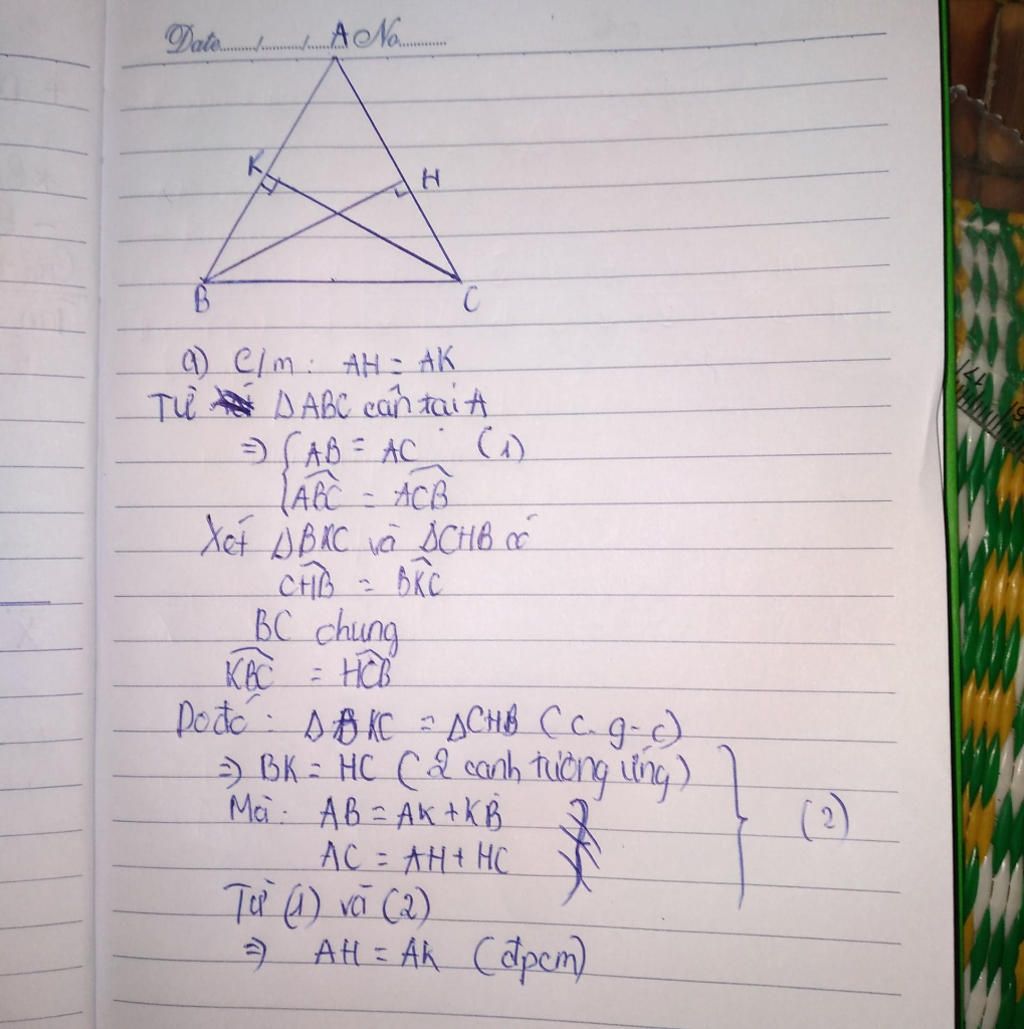 Date......./......./....... No...........
A
K
H
B
C
a) C/m: AH = AK
Từ ΔABC cân tại A
=> { AB = AC (1)
ABC = ACB
Xét ΔBKC và ΔCHB có
CHB = BKC
BC chung
KBC = HCB
Do đó: ΔBKC = ΔCHB (c-g-c)
=> BK = HC (2 cạnh tương ứng)
Mà: AB = AK + KB
AC = AH + HC
(2)
Từ (1) và (2)
=> AH = AK (đpcm)